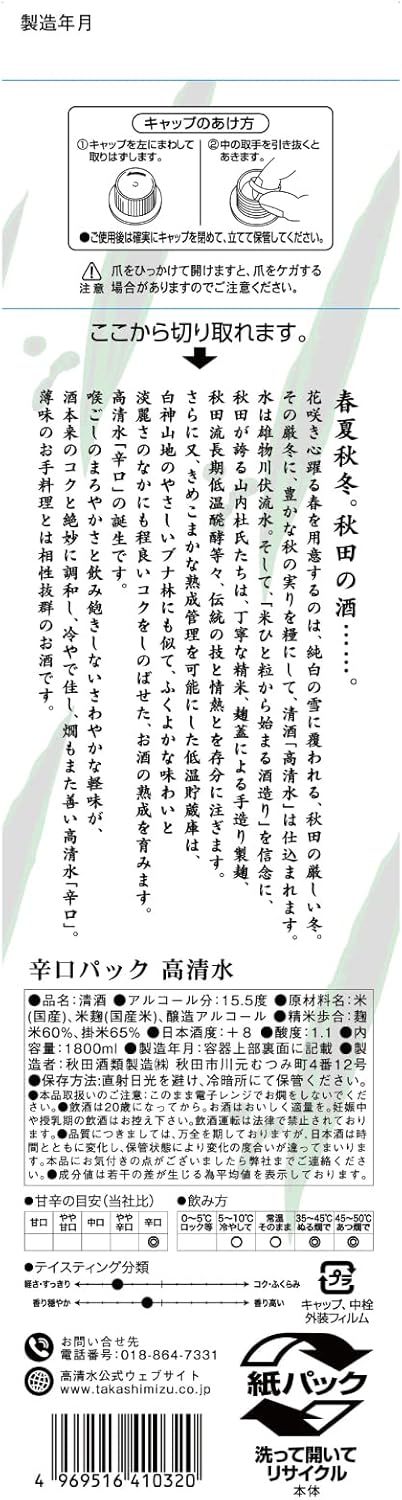 製造年月
キャップのあけ方
①キャップを左にまわして
取りはずします。
②中の取手を引き抜くと
あきます。
●ご使用後は確実にキャップを閉めて、立てて保管してください。
注意
爪をひっかけて開けますと、爪をケガする
場合がありますのでご注意ください。
ここから切り取れます。
春夏秋冬。秋田の酒……。
花咲き心躍る春を用意するのは、純白の雪に覆われる、秋田の厳しい冬。
その厳冬に、豊かな秋の実りを糧にして、清酒「高清水」は仕込まれます。
水は雄物川伏流水。そして、「米ひと粒から始まる酒造り」を信念に、
秋田が誇る山内杜氏たちは、丁寧な精米、麹蓋による手造り製麹、
秋田流長期低温醗酵等々、伝統の技と情熱とを存分に注ぎます。
さらに又、きめこまかな熟成管理を可能にした低温貯蔵庫は、
白神山地のやさしいブナ林にも似て、ふくよかな味わいと
淡麗さのなかにも程良いコクをしのばせた、お酒の熟成を育みます。
高清水「辛口」の誕生です。
喉ごしのまろやかさと飲み飽きしないさわやかな軽味が、
酒本来のコクと絶妙に調和し、冷やで佳し、燗もまた善い高清水「辛口」。
薄味のお手料理とは相性抜群のお酒です。
辛口パック 高清水
●品名:清酒 ●アルコール分:15.5度 ●原材料名:米
(国産)、米麹(国産米)、醸造アルコール ●精米歩合:麹
米60%、掛米65% ●日本酒度:+8 ●酸度:1.1 ●内
容量:1800ml ●製造年月:容器上部裏面に記載 ●製
造者:秋田酒類製造㈱ 秋田市川元むつみ町4番12号
●保存方法:直射日光を避け、冷暗所にて保管ください。
●本品取扱いのご注意:このまま電子レンジでお燗をしないでくだ
さい。●飲酒は20歳になってから。お酒はおいしく適量を。妊娠中
や授乳期の飲酒はお控え下さい。飲酒運転は法律で禁止されており
ます。●品質につきましては、万全を期しておりますが、日本酒は時
間とともに変化し、保管状態により変化の度合いが違ってまいりま
す。本品にお気付きの点がございましたら弊社までご連絡くださ
い。●成分値は若干の差が生じる為平均値を表示しております。
●甘辛の目安(当社比)
甘口 やや甘口 中口 やや辛口 辛口
◎
●飲み方
0〜5℃ロック等 5〜10℃冷やして 常温そのまま 35〜45℃ぬる燗で 45〜50℃あつ燗で
○ ○ ◎ ◎
●テイスティング分類
軽さ・すっきり コク・ふくらみ
香り穏やか 香り高い
プラ
キャップ、中栓
外装フィルム
お問い合せ先
電話番号:018-864-7331
高清水公式ウェブサイト
www.takashimizu.co.jp
紙パック
洗って開いて
リサイクル
本体
4 969516 410320